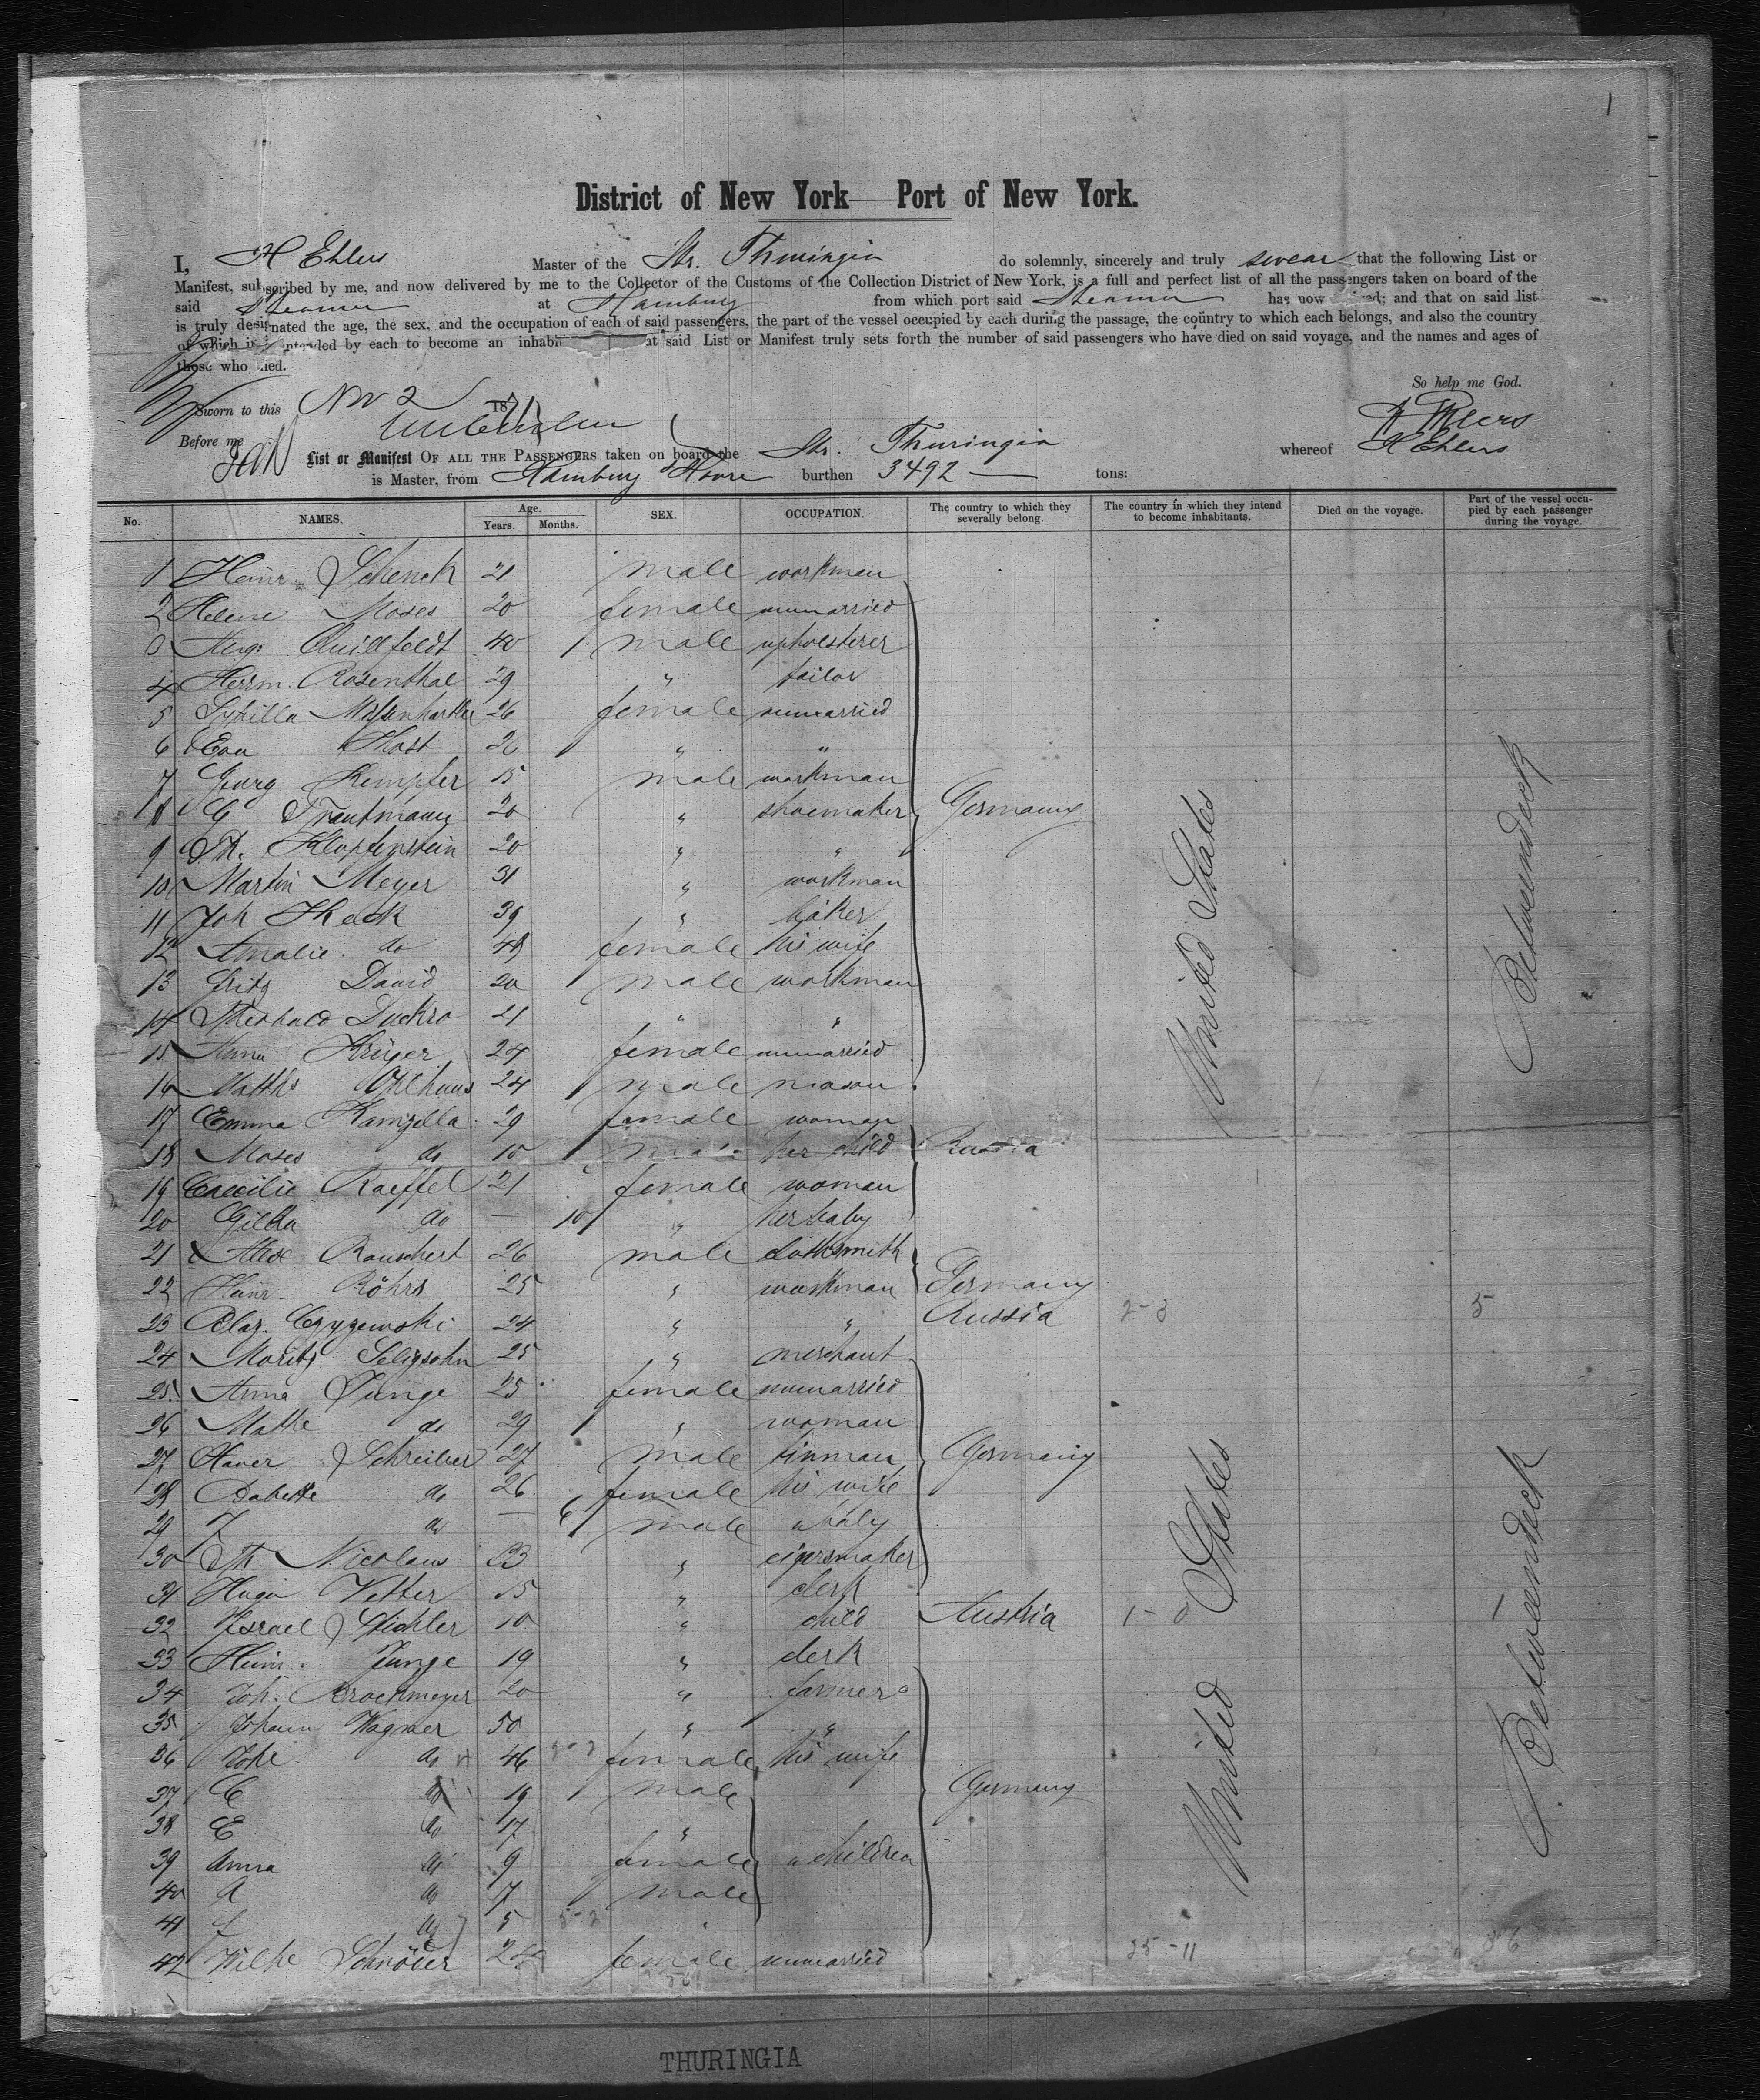 1
District of New York — Port of New York.
I, H Ehlers Master of the Str. Thuringia do solemnly, sincerely and truly swear that the following List or
Manifest, subscribed by me, and now delivered by me to the Collector of the Customs of the Collection District of New York, is a full and perfect list of all the passengers taken on board of the
said Steamer at Hamburg from which port said Steamer has now arrived; and that on said list
is truly designated the age, the sex, and the occupation of each of said passengers, the part of the vessel occupied by each during the passage, the country to which each belongs, and also the country
of which it is intended by each to become an inhabi at said List or Manifest truly sets forth the number of said passengers who have died on said voyage, and the names and ages of
those who died.
So help me God.
Sworn to this Nov 2 187
H Ehlers
Before me
List or Manifest OF ALL THE PASSENGERS taken on board the Str. Thuringia whereof H Ehlers
is Master, from Hamburg & Havre burthen 3492 tons:
No. NAMES. Age. Years. Months. SEX. OCCUPATION. The country to which they severally belong. The country in which they intend to become inhabitants. Died on the voyage. Part of the vessel occupied by each passenger during the voyage.
1 Heinr. Schenck 21 male workman
2 Helene Moses 20 female unmarried
3 Aug. Quillfeldt 40 male upholsterer
4 Herrm. Rosenthal 29 " tailor
5 Sybilla 26 female unmarried
6 Eva Host 26 " "
7 Georg Kempfer 15 male workman
8 G Trautmann 20 " shoemaker Germany
9 Th. Klopfenstein 20 " "
10 Martin Meyer 31 " workman
11 Joh Heck 39 " baker
12 Amalie do 48 female his wife
13 Fritz David 20 male workman
14 Theobald Luckro 21 " "
15 Anna Krüger 24 female unmarried
16 Matths Ohlhaus 24 male mason
United States
Betweendeck
17 Emma Kamzella 29 female woman
18 Moses do 10 male her child Russia
19 Caecilie Raeffel 21 female woman
20 Gilka do — 10 " her baby
21 Alex Rauschert 26 male clothsmith
22 Heinr. Röhrs 25 " workman Germany
23 Blaz. Czyzewski 24 " " Russia 2-3 5
24 Moritz Seligsohn 25 " merchant
25 Anna Junge 25 female unmarried
26 Mathe do 29 " woman
27 Xaver Schreiber 27 male tinman Germany
28 Babette do 26 female his wife
29 J do — 6 male " baby
30 Th. Nicolaus 23 " cigarsmaker
31 Hugo Vetter 15 " clerk
32 Israel Stichler 10 " child Austria 1-0
33 Heinr. Junge 19 " clerk
34 Joh. Brockmeyer 20 " farmer
35 Johann Wagner 50 " "
36 Johe do 46 female his wife
37 C do 19 male Germany
38 E do 17 "
39 Anna do 9 female " children
40 A do 7 male
41 L do 5 "
42 Wilhe Schröder 24 female unmarried 25-11 36
United States
Betweendeck
THURINGIA